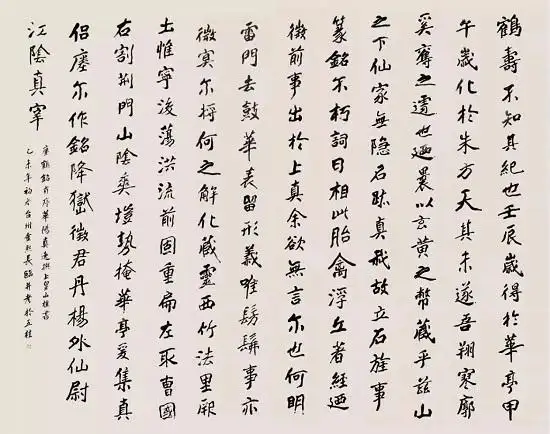 鶴壽不知其紀也壬辰歲得於華亭甲
午歲化於朱方天其未遂吾翔寥廓
奚奪之遽也迺裹以玄黃之幣藏乎茲山
之下仙家無隐名跡真我故立石旌事
篆銘不朽詞曰相此胎禽浮丘著經迺
徵前事出於上真余欲無言尔也何明
雷門去鼓華表留形義唯髣髴事亦
微冥尔將何之解化藏靈西竹法里厥
土惟寧後蕩洪流前固重扃左取曹國
右割荆門山陰爽塏勢掩華亭爰集真
侶瘞尔作銘降嶽徵君丹楊外仙尉
江陰真宰
瘞鶴銘有序華陽真逸撰上皇山樵書
乙未年初冬台州長臨於